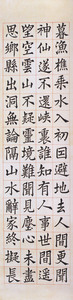 暮漁樵乘水入初因避地去人間更聞
神仙遂不還峽裏誰知有人事世間遙
望空雲山不疑靈境難聞見塵心未盡
思鄉縣出洞無論隔山水辭家終擬長